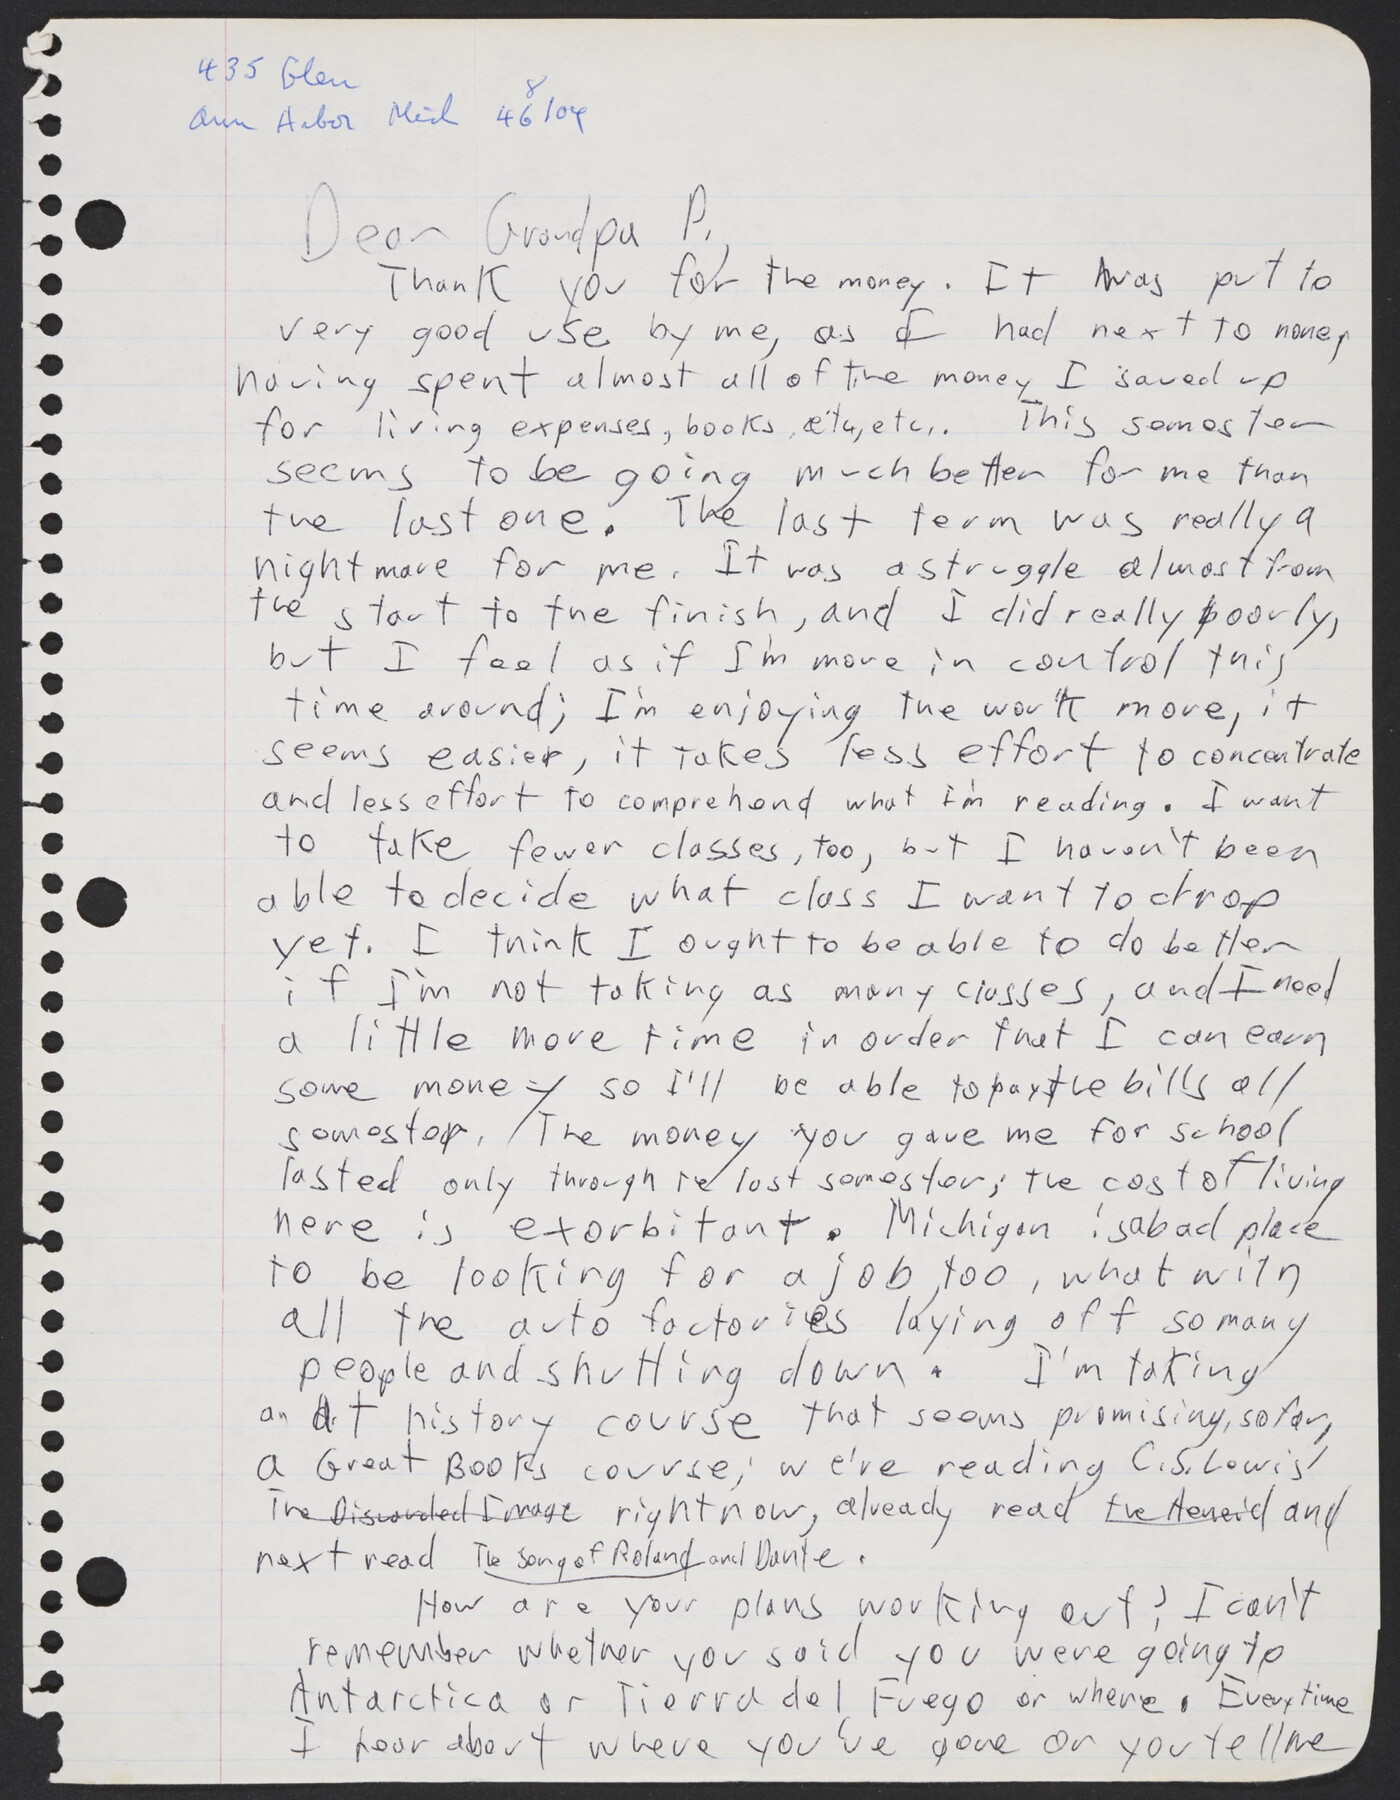 435 Glen
Ann Arbor Mich 48104
Dear Grandpa P.,
Thank you for the money. It was put to
very good use by me, as I had next to none,
having spent almost all of the money I saved up
for living expenses, books, etc, etc,. This semester
seems to be going much better for me than
the last one. The last term was really a
nightmare for me. It was a struggle almost from
the start to the finish, and I did really poorly,
but I feel as if I'm more in control this
time around; I'm enjoying the work more, it
seems easier, it takes less effort to concentrate
and less effort to comprehend what I'm reading. I want
to take fewer classes, too, but I haven't been
able to decide what class I want to drop
yet. I think I ought to be able to do better
if I'm not taking as many classes, and I need
a little more time in order that I can earn
some money so I'll be able to pay the bills all
semester. The money you gave me for school
lasted only through the last semester; the cost of living
here is exorbitant. Michigan is a bad place
to be looking for a job, too, what with
all the auto factories laying off so many
people and shutting down. I'm taking
an Art history course that seems promising, so far,
a Great Books course; we're reading C.S. Lewis'
The Discarded Image right now, already read the Aeneid and
next read The Song of Roland and Dante.
How are your plans working out? I can't
remember whether you said you were going to
Antarctica or Tierra del Fuego or where. Every time
I hear about where you've gone or you tell me